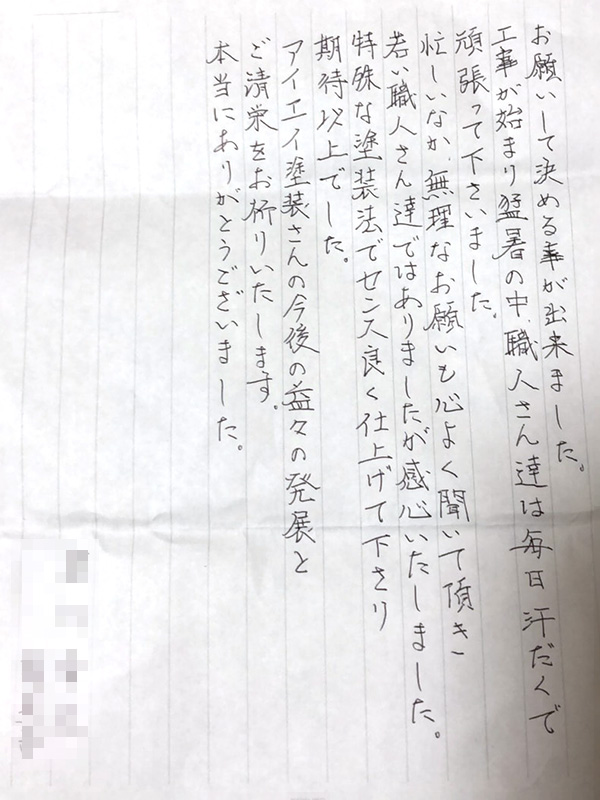 お願いして決める事が出来ました。
工事が始まり猛暑の中、職人さん達は毎日汗だくで
頑張って下さいました。
忙しいなか、無理なお願いも心よく聞いて頂き
若い職人さん達ではありましたが感心いたしました。
特殊な塗装法でセンス良く仕上げて下さり
期待以上でした。
アイエイ塗装さんの今後の益々の発展と
ご清栄をお祈りいたします。
本当にありがとうございました。